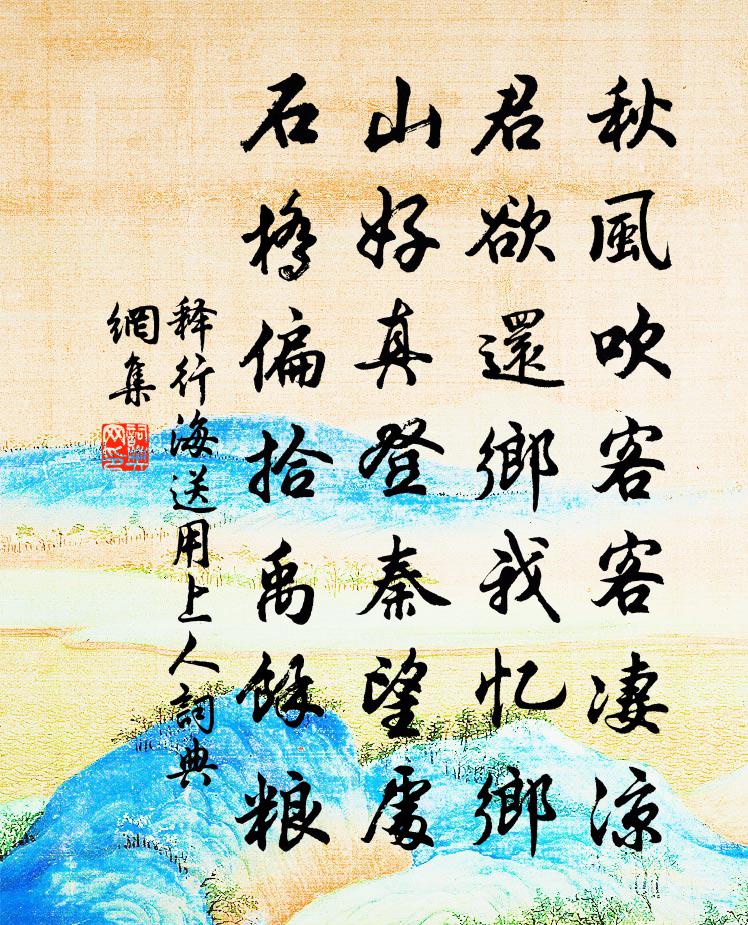 秋風吹客客凄涼
君欲還鄉我忆鄉
山好真登秦望處
石橋偏拾禹餘粮
释行海送用上人詞典
網集